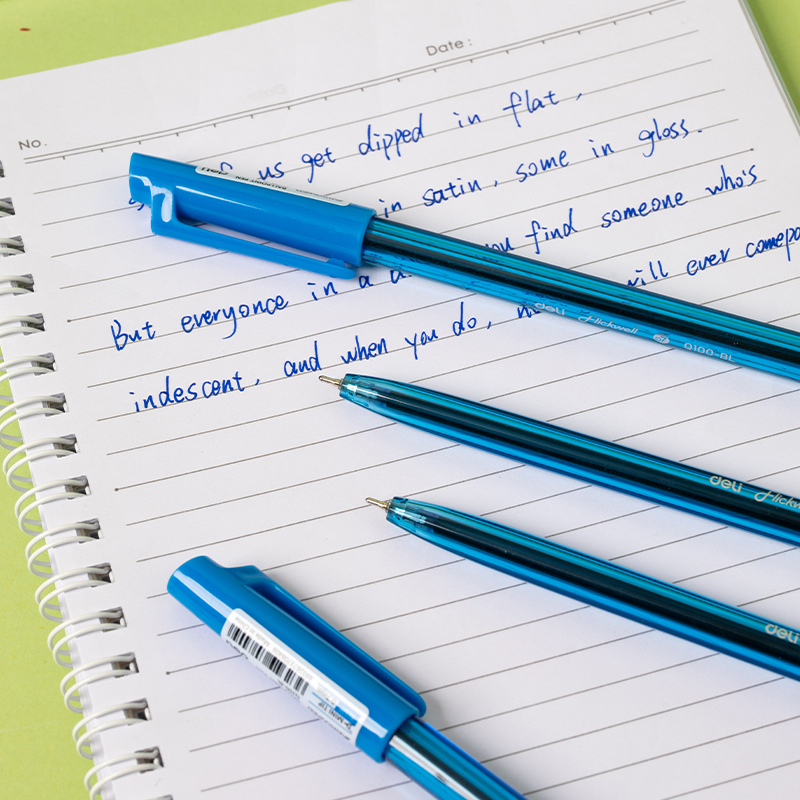 Date:
No.
us get dipped in flat,
in satin, some in gloss.
you find someone who's
But everyonce in a will ever comepa
indescent, and when you do,
deli Flickwell Q100-BL
deli Flickwell
deli
DELI